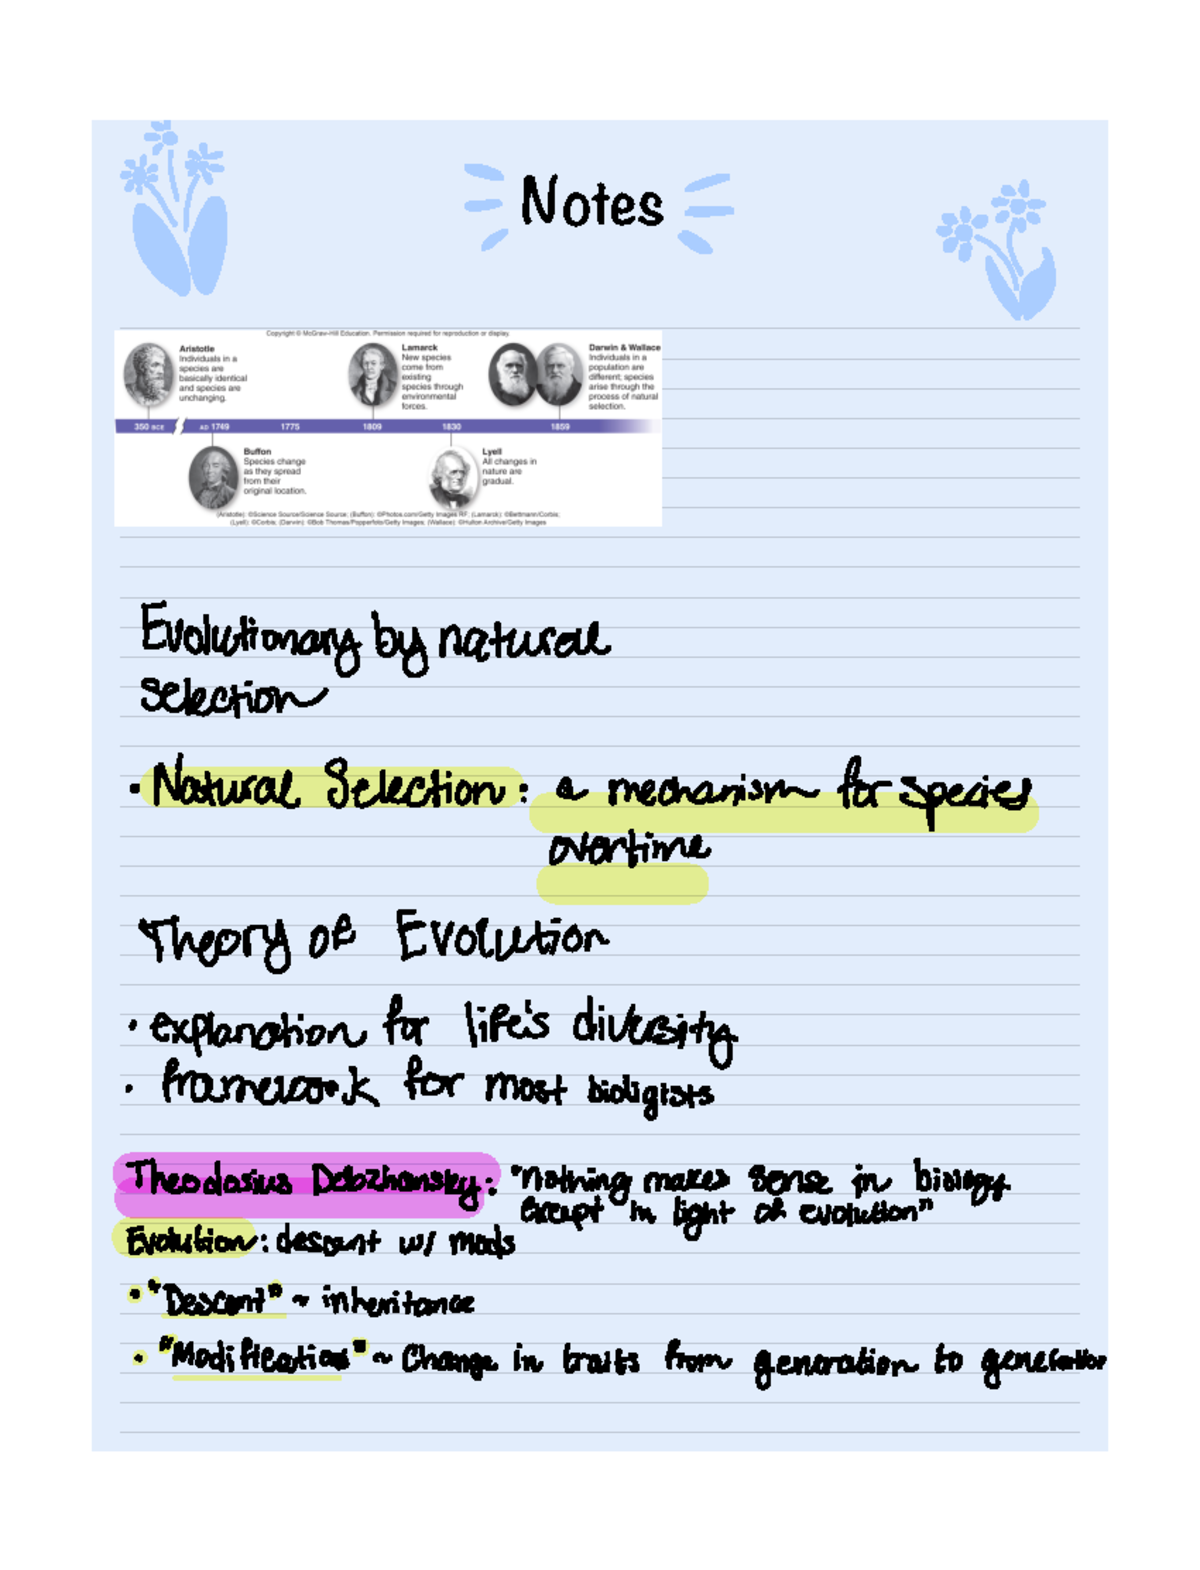 Notes
Copyright © McGraw-Hill Education. Permission required for reproduction or display.
Aristotle
Individuals in a
species are
basically identical
and species are
unchanging.
Lamarck
New species
come from
existing
species through
environmental
forces.
Darwin & Wallace
Individuals in a
population are
different; species
arise through the
process of natural
selection.
350 BCE AD 1769 1775 1809 1830 1859
Buffon
Species change
as they spread
from their
original location.
Lyell
All changes in
nature are
gradual.
(Aristotle): ©Science Source/Science Source; (Buffon): ©Photos.com/Getty Images RF; (Lamarck): ©Bettmann/Corbis;
(Lyell): ©Corbis; (Darwin): ©Bob Thomas/Popperfoto/Getty Images; (Wallace): ©Hulton Archive/Getty Images
Evolutionary by natural
selection
• Natural Selection: a mechanism for species
overtime
Theory of Evolution
• explanation for life's diversity
• framework for most bioligists
Theodosius Dobzhansky: "Nothing makes sense in biology
except in light of evolution"
Evolution: descent w/ mods
• "Descent" ~ inheritance
• "Modification" ~ Change in traits from generation to generation